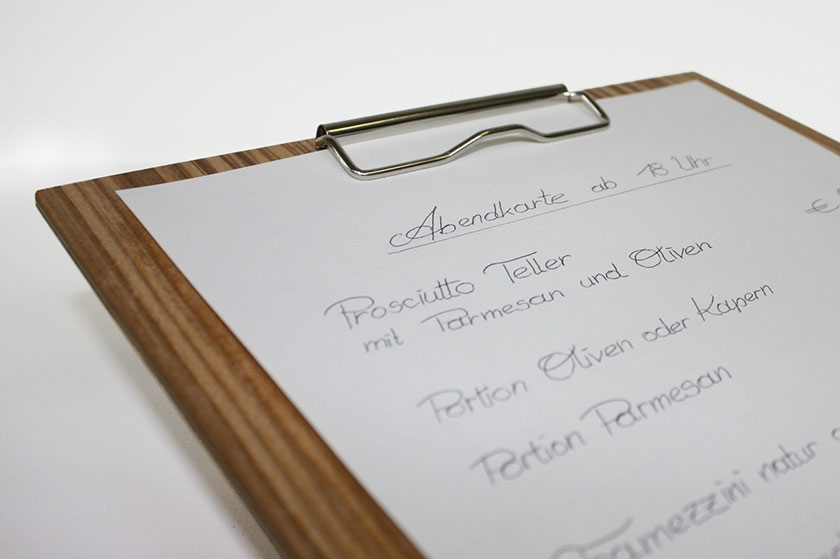 Abendkarte ab 18 Uhr
€
Prosciutto Teller
mit Parmesan und Oliven
Portion Oliven oder Kapern
Portion Parmesan
Tramezzini natur